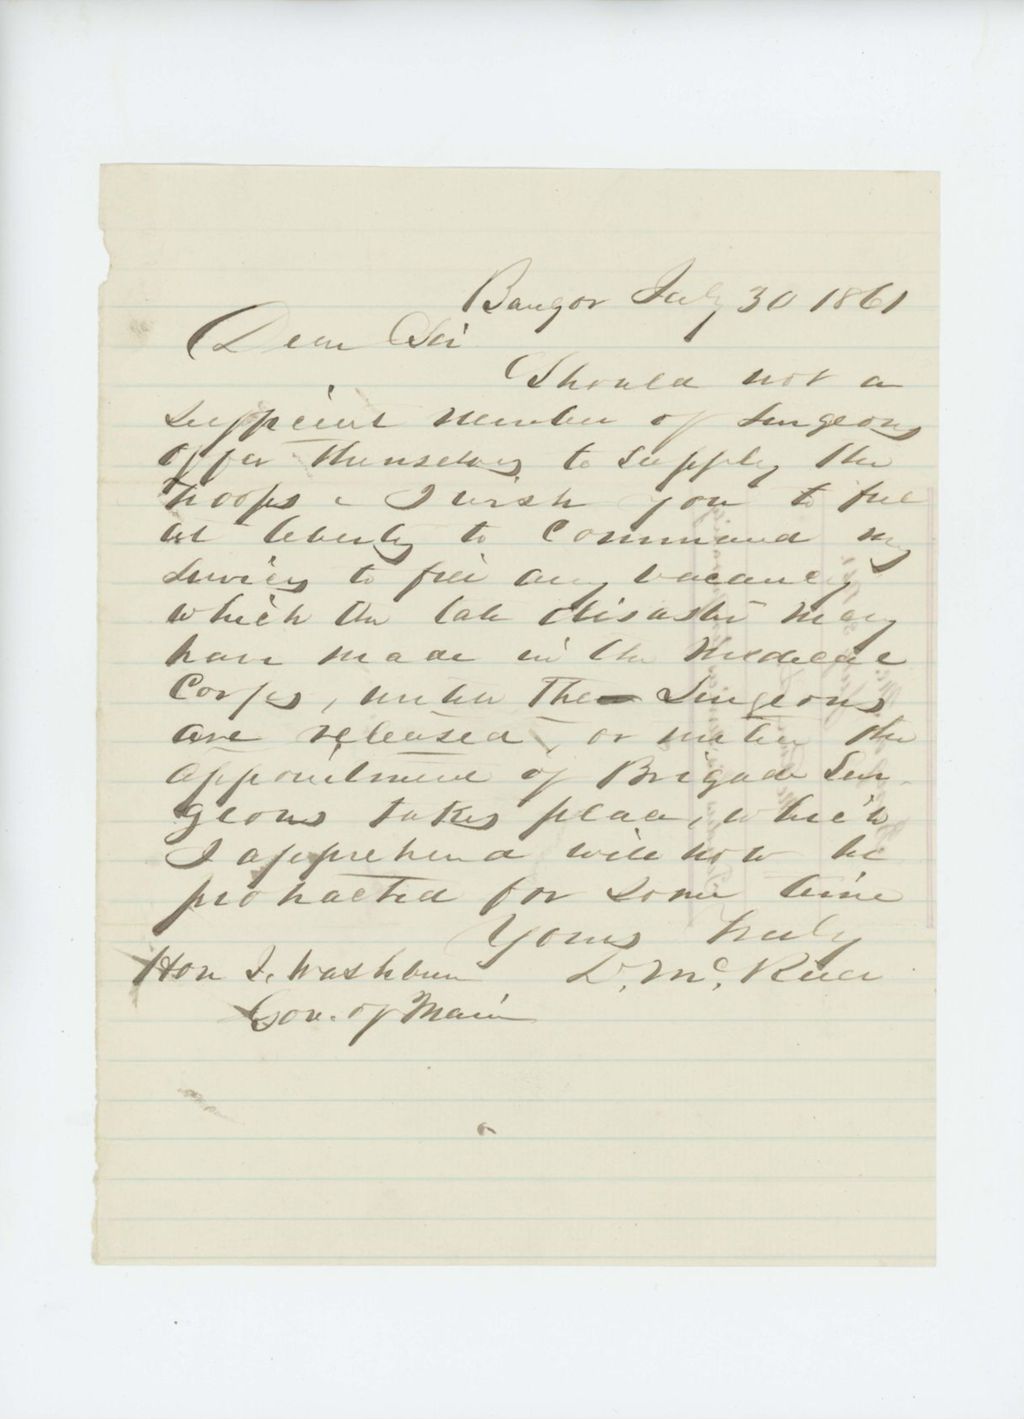 Bangor July 30 1861
Dear Sir
Should not a
sufficient number of Surgeons
offer themselves to supply the
troops - I wish you to feel
at liberty to command my
services to fill any vacancy
which the late disaster may
have made in the Medical
Corps, until the Surgeons
are released, or until the
appointment of Brigade Sur-
geons takes place, which
I apprehend will not be
protracted for some time
Yours truly
D. Mc. Ruer
Hon I. Washburn
Gov. of Maine